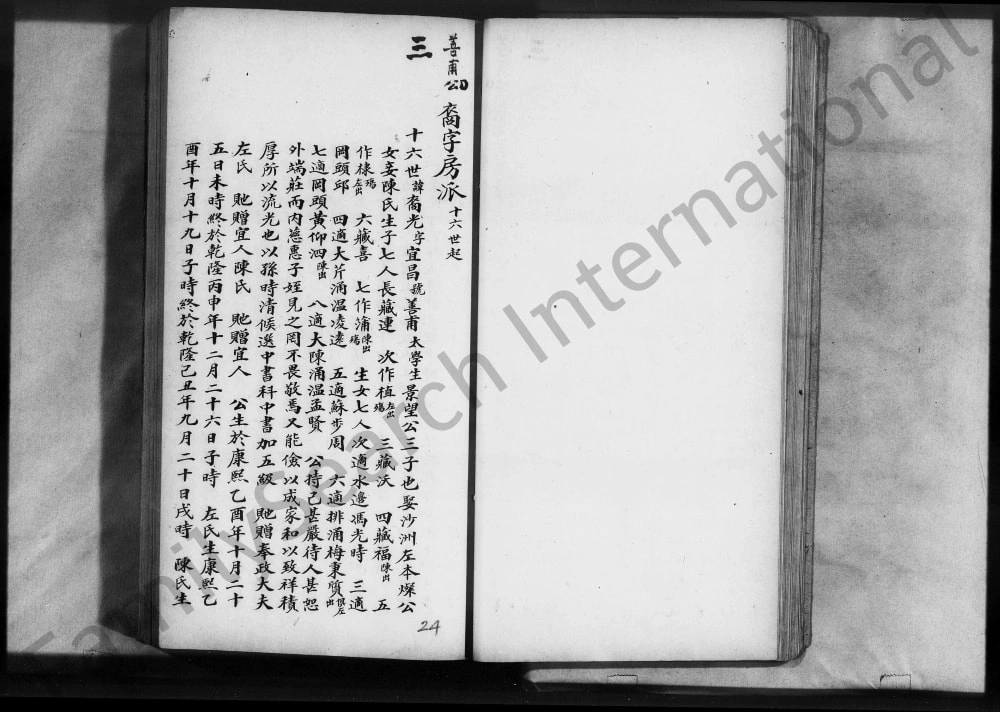 善甫公
三
裔字房派 十六世起
十六世諱裔光字宜昌號善甫太學生景望公三子也娶沙洲左本燦公
女妾陳氏生子七人長藏連 次作植左出殤 三藏沃 四藏福陳出 五
作棣殤左出 六藏喜 七作蒲陳出殤 生女七人次適水邊馮光時 三適
岡頭邱 四適大芹涌溫凌遠 五適蘇步周 六適排涌梅秉質俱左出
七適岡頭黃仰泗陳出 八適大陳涌溫孟賢 公持己甚嚴待人甚恕
外端莊而內慈惠子姪見之罔不畏敬焉又能儉以成家和以致祥積
厚所以流光也以孫時清候選中書科中書加五級 貤贈奉政大夫
左氏 貤贈宜人陳氏 貤贈宜人 公生於康熙乙酉年十月二十
五日未時終於乾隆丙申年十二月二十六日子時 左氏生康熙乙
酉年十月十九日子時終於乾隆己丑年九月二十日戌時 陳氏生
24
FamilySearch International